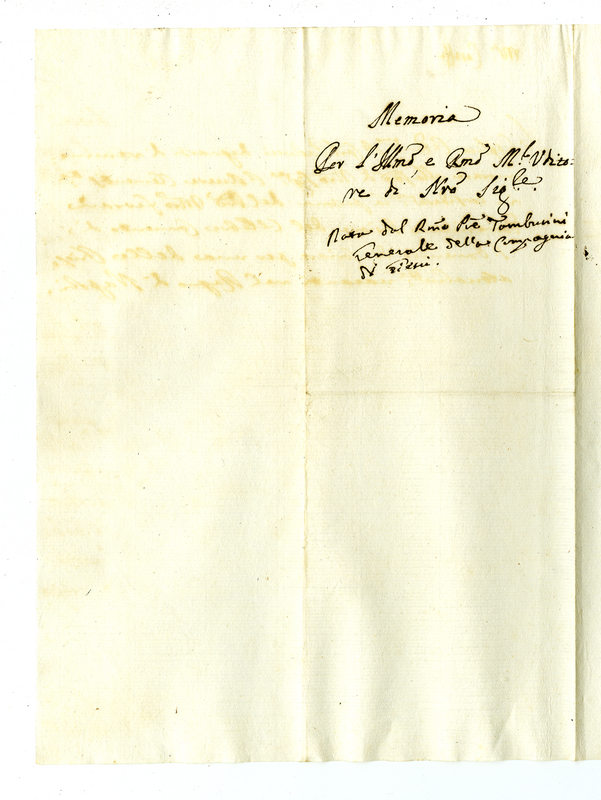 Memoria
Per l'Illmo e Rmo Mr Udito-
re di Nro Sigre.
Data dal Rmo Pre Tamburini
Generale della Compagnia
di Giesù.